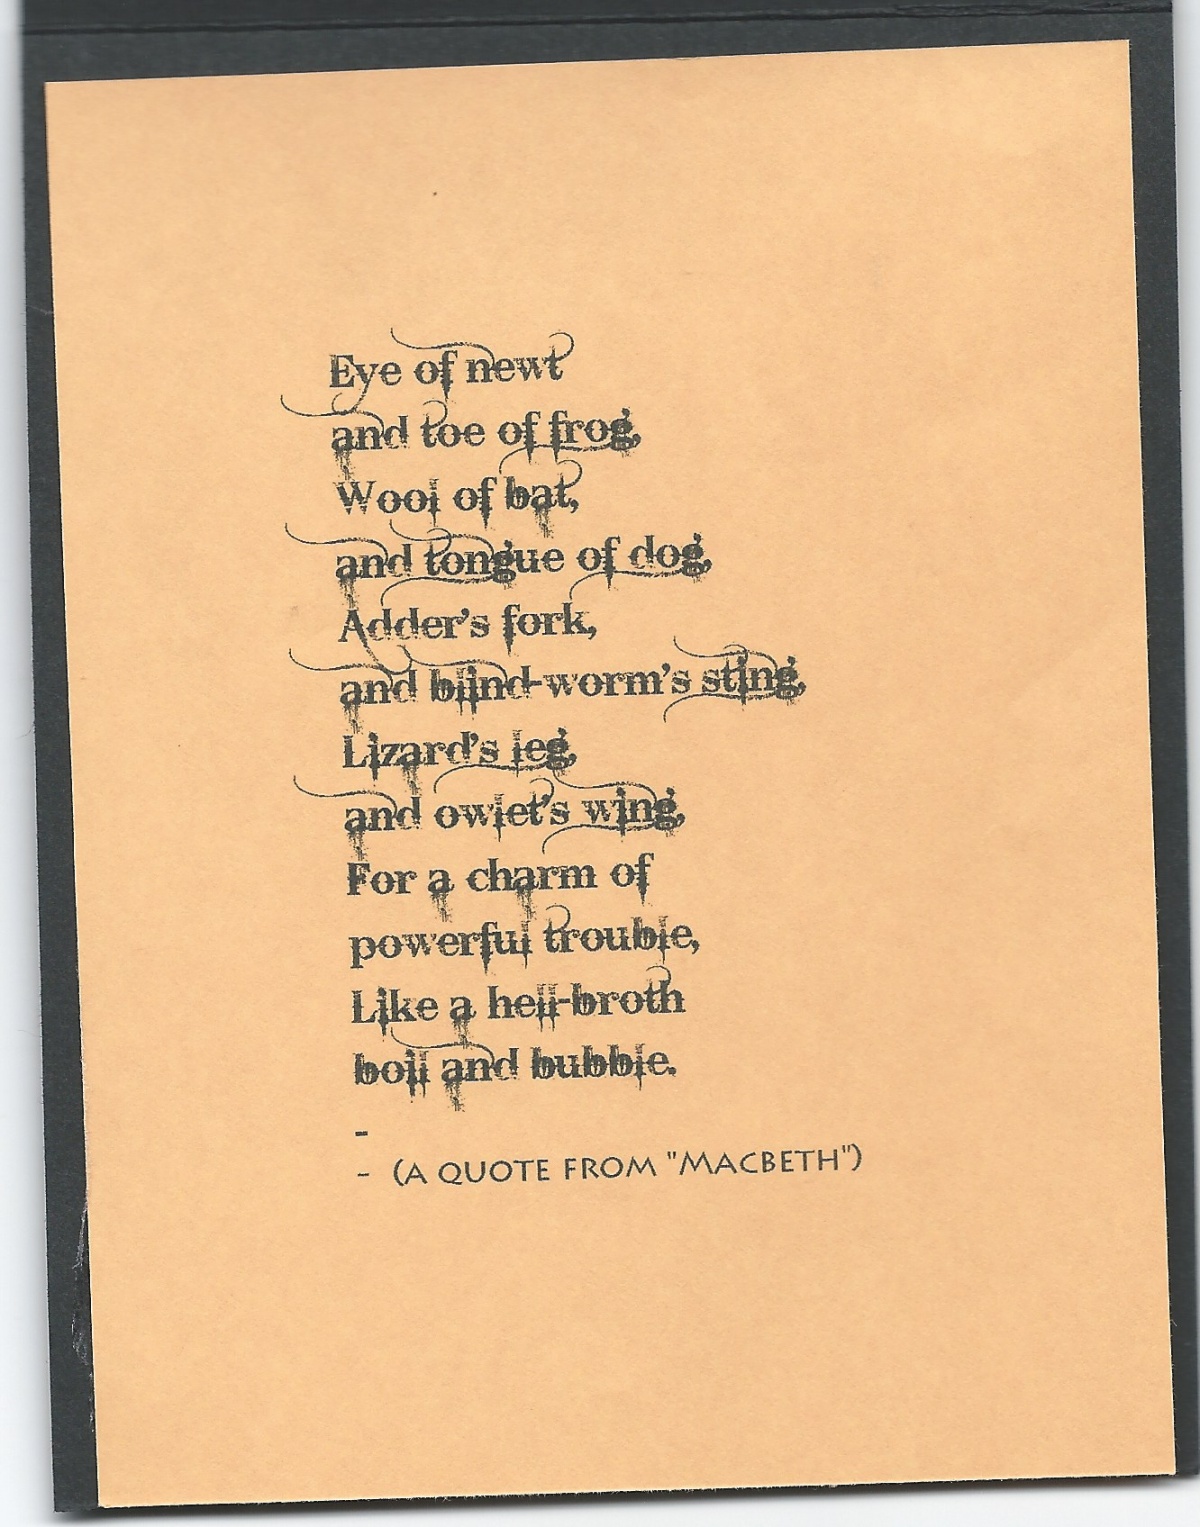 Eye of newt
and toe of frog,
Wool of bat,
and tongue of dog,
Adder's fork,
and blind-worm's sting,
Lizard's leg,
and owlet's wing,
For a charm of
powerful trouble,
Like a hell-broth
boil and bubble.
-
- (A QUOTE FROM "MACBETH")